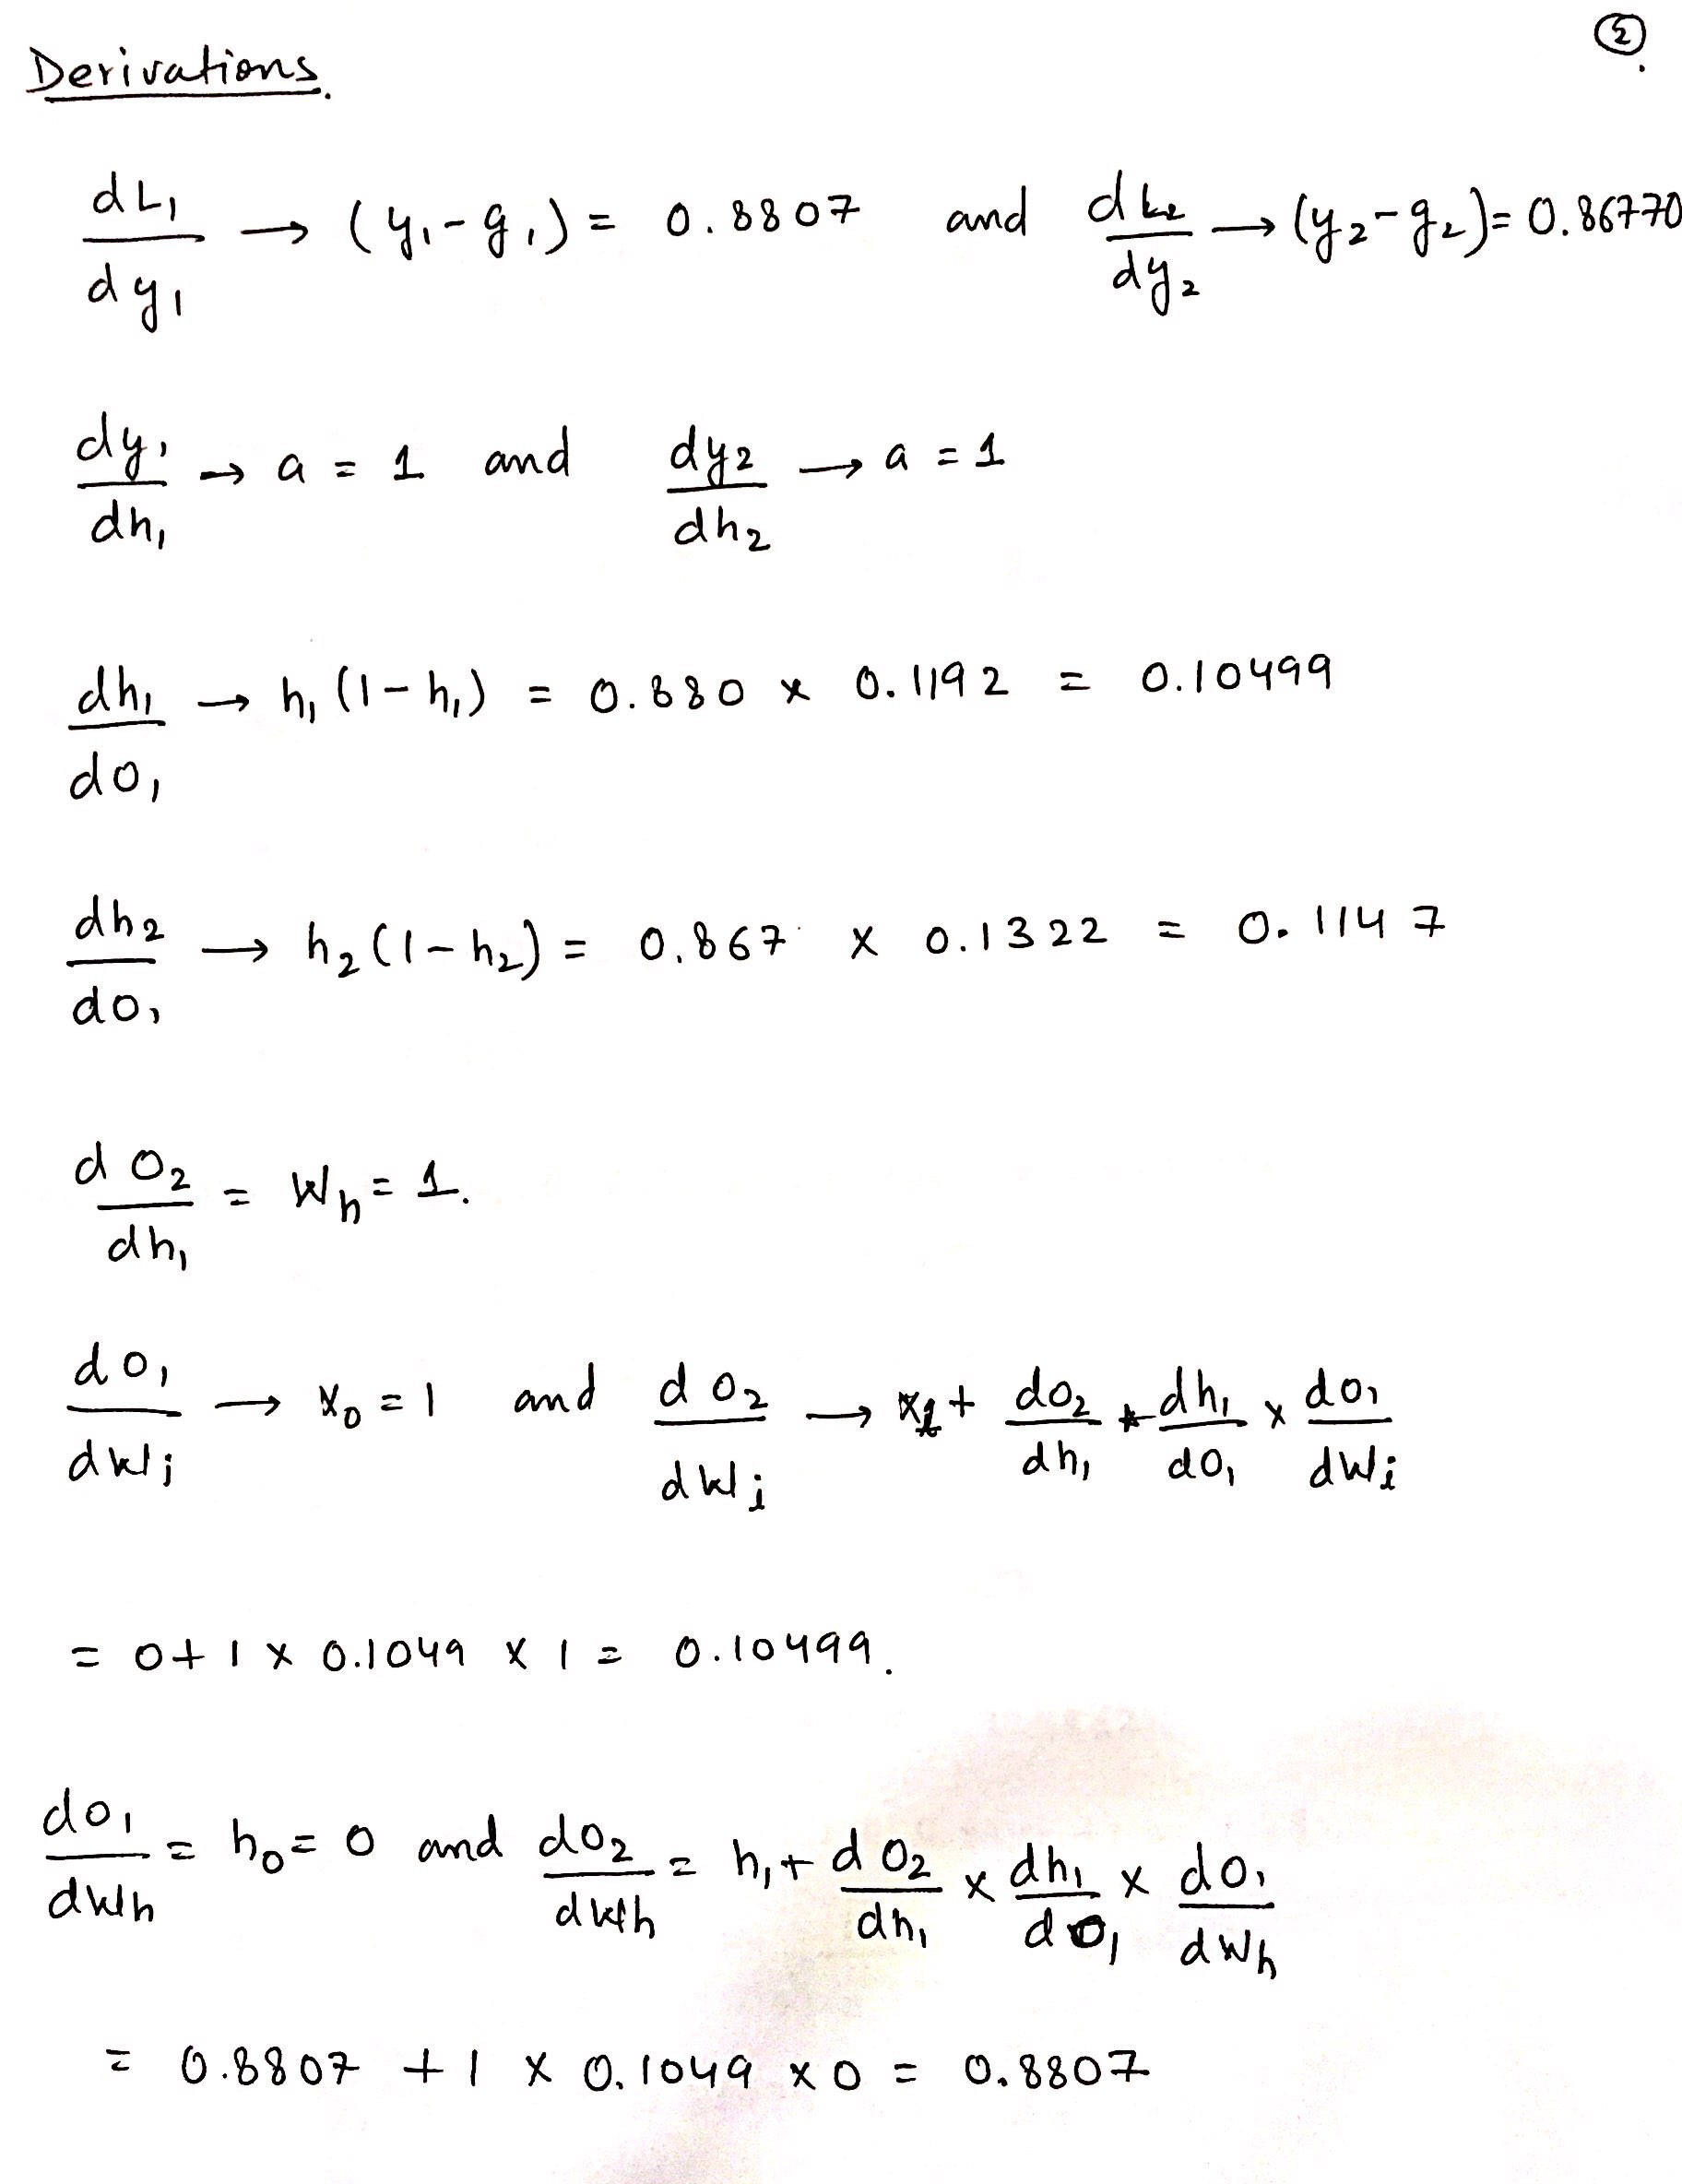 ②.
Derivations.
dL₁/dy₁ → (y₁-g₁) = 0.8807 and dL₂/dy₂ → (y₂-g₂) = 0.86770
dy₁/dh₁ → a = 1 and dy₂/dh₂ → a = 1
dh₁/do₁ → h₁(1-h₁) = 0.880 x 0.1192 = 0.10499
dh₂/do₁ → h₂(1-h₂) = 0.867 x 0.1322 = 0.1147
do₂/dh₁ = Wh = 1.
do₁/dWi → x₀ = 1 and do₂/dWi → x₁ + do₂/dh₁ * dh₁/do₁ x do₁/dWi
= 0 + 1 x 0.1049 x 1 = 0.10499.
do₁/dWh = h₀ = 0 and do₂/dWh = h₁ + do₂/dh₁ x dh₁/do₁ x do₁/dWh
= 0.8807 + 1 x 0.1049 x 0 = 0.8807